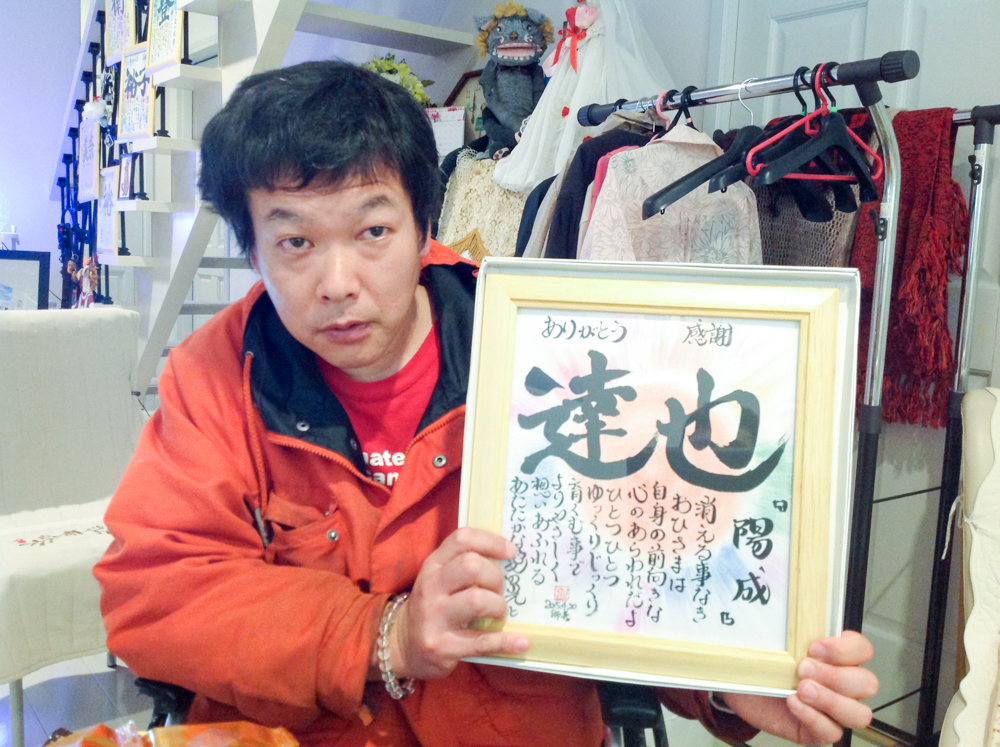 ありがとう 感謝
達也
「陽成」
消える事なき
おひさまは
自身の前向きな
心のあらわれだよ
ひとつひとつ
ゆっくりじっくり
育くむ事で
よりやさしく
想いあふれる
あたたかな
裕子